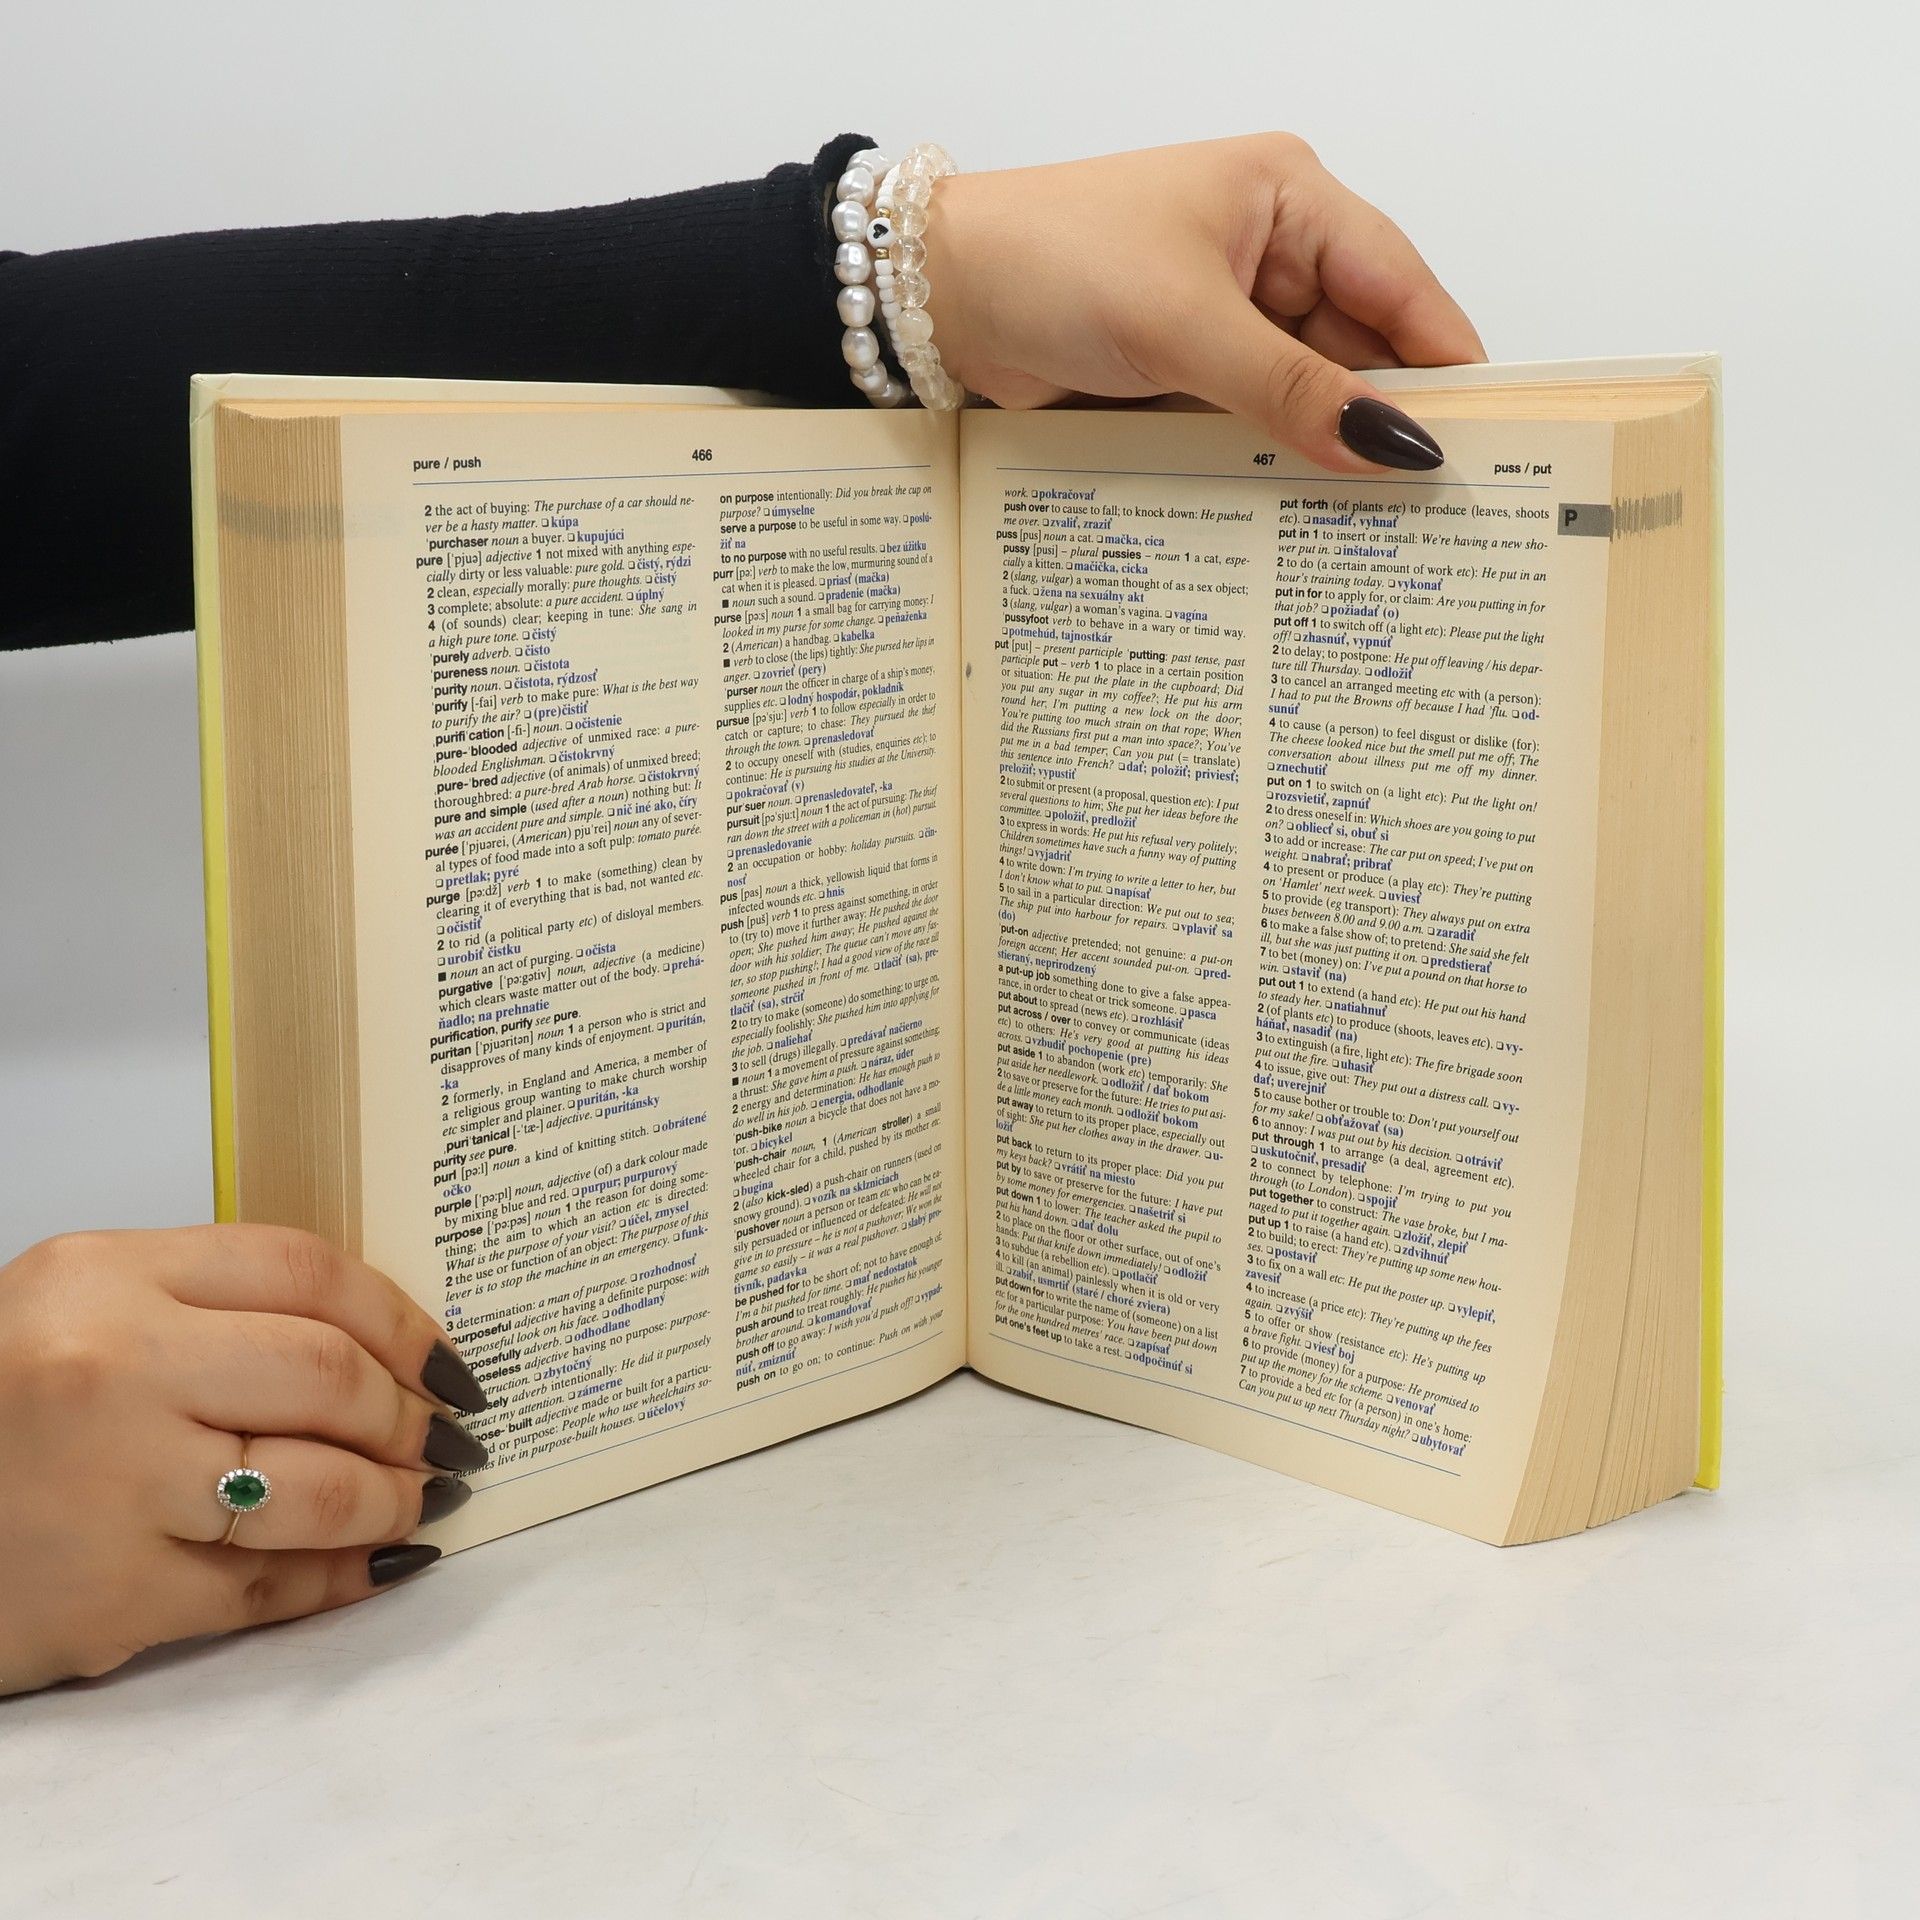 pure / push
466
2 the act of buying: The purchase of a car should ne-
ver be a hasty matter. ❑ kúpa
'purchaser noun a buyer. ❑ kupujúci
pure ['pjuə] adjective 1 not mixed with anything espe-
cially dirty or less valuable: pure gold. ❑ čistý, rýdzi
2 clean, especially morally: pure thoughts. ❑ čistý
3 complete; absolute: a pure accident. ❑ úplný
4 (of sounds) clear; keeping in tune: She sang in
a high pure tone. ❑ čistý
'purely adverb. ❑ čisto
'pureness noun. ❑ čistota
'purity noun. ❑ čistota, rýdzosť
'purify [-fai] verb to make pure: What is the best way
to purify the air? ❑ (pre)čistiť
,purifi'cation [-fi-] noun. ❑ očistenie
,pure-'blooded adjective of unmixed race: a pure-
blooded Englishman. ❑ čistokrvný
,pure-'bred adjective (of animals) of unmixed breed;
thoroughbred: a pure-bred Arab horse. ❑ čistokrvný
pure and simple (used after a noun) nothing but: It
was an accident pure and simple. ❑ nič iné ako, číry
purée ['pjuərei, (American) pju'rei] noun any of sever-
al types of food made into a soft pulp: tomato purée.
❑ pretlak; pyré
purge [pə:dž] verb 1 to make (something) clean by
clearing it of everything that is bad, not wanted etc.
❑ očistiť
2 to rid (a political party etc) of disloyal members.
❑ urobiť čistku
■ noun an act of purging. ❑ očista
purgative ['pə:gətiv] noun, adjective (a medicine)
which clears waste matter out of the body. ❑ prehá-
ňadlo; na prehnatie
purification, purify see pure.
puritan ['pjuəritən] noun 1 a person who is strict and
disapproves of many kinds of enjoyment. ❑ puritán,
-ka
2 formerly, in England and America, a member of
a religious group wanting to make church worship
etc simpler and plainer. ❑ puritán, -ka
,puri'tanical [-'tæ-] adjective. ❑ puritánsky
purity see pure.
purl [pə:l] noun a kind of knitting stitch. ❑ obrátené
očko
purple ['pə:pl] noun, adjective (of) a dark colour made
by mixing blue and red. ❑ purpur; purpurový
purpose ['pə:pəs] noun 1 the reason for doing some-
thing; the aim to which an action etc is directed:
What is the purpose of your visit? ❑ účel, zmysel
2 the use or function of an object: The purpose of this
lever is to stop the machine in an emergency. ❑ funk-
cia
3 determination: a man of purpose. ❑ rozhodnosť
purposeful adjective having a definite purpose: with
purposeful look on his face. ❑ odhodlaný
posefully adverb. ❑ odhodlane
oseless adjective having no purpose: purpose-
struction. ❑ zbytočný
sely adverb intentionally: He did it purposely
attract my attention. ❑ zámerne
pose-'built adjective made or built for a particu-
d or purpose: People who use wheelchairs so-
live in purpose-built houses. ❑ účelový
on purpose intentionally: Did you break the cup on
purpose? ❑ úmyselne
serve a purpose to be useful in some way. ❑ poslú-
žiť na
to no purpose with no useful results. ❑ bez úžitku
purr [pə:] verb to make the low, murmuring sound of a
cat when it is pleased. ❑ priasť (mačka)
■ noun such a sound. ❑ pradenie (mačka)
purse [pə:s] noun 1 a small bag for carrying money: I
looked in my purse for some change. ❑ peňaženka
2 (American) a handbag. ❑ kabelka
■ verb to close (the lips) tightly: She pursed her lips in
anger. ❑ zovrieť (pery)
'purser noun the officer in charge of a ship's money,
supplies etc. ❑ lodný hospodár, pokladník
pursue [pə'sju:] verb 1 to follow especially in order to
catch or capture; to chase: They pursued the thief
through the town. ❑ prenasledovať
2 to occupy oneself with (studies, enquiries etc); to
continue: He is pursuing his studies at the University.
❑ pokračovať (v)
pur'suer noun. ❑ prenasledovateľ, -ka
pursuit [pə'sju:t] noun 1 the act of pursuing: The thief
ran down the street with a policeman in (hot) pursuit.
❑ prenasledovanie
2 an occupation or hobby: holiday pursuits. ❑ čin-
nosť
pus [pas] noun a thick, yellowish liquid that forms in
infected wounds etc. ❑ hnis
push [puš] verb 1 to press against something, in order
to (try to) move it further away: He pushed the door
open; She pushed him away; He pushed against the
door with his soldier, The queue can't move any fas-
ter, so stop pushing!; I had a good view of the race till
someone pushed in front of me. ❑ tlačiť (sa), pre-
tlačiť (sa), strčiť
2 to try to make (someone) do something; to urge on,
especially foolishly: She pushed him into applying for
the job. ❑ naliehať
3 to sell (drugs) illegally. ❑ predávať načierno
■ noun 1 a movement of pressure against something;
a thrust: She gave him a push. ❑ náraz, úder
2 energy and determination: He has enough push to
do well in his job. ❑ energia, odhodlanie
'push-bike noun a bicycle that does not have a mo-
tor. ❑ bicykel
'push-chair noun, 1 (American stroller) a small
wheeled chair for a child, pushed by its mother etc.
❑ bugina
2 (also kick-sled) a push-chair on runners (used on
snowy ground). ❑ vozík na sklzniciach
'pushover noun a person or team etc who can be ea-
sily persuaded or influenced or defeated: He will not
give in to pressure – he is not a pushover; We won the
game so easily – it was a real pushover. ❑ slabý pro-
tivník, padavka
be pushed for to be short of; not to have enough of:
I'm a bit pushed for time. ❑ mať nedostatok
push around to treat roughly: He pushes his younger
brother around. ❑ komandovať
push off to go away: I wish you'd push off! ❑ vypad-
núť, zmiznúť
push on to go on; to continue: Push on with your
467
puss / put
P
work. ❑ pokračovať
push over to cause to fall; to knock down: He pushed
me over. ❑ zvaliť, zraziť
puss [pus] noun a cat. ❑ mačka, cica
pussy [pusi] – plural pussies – noun 1 a cat, espe-
cially a kitten. ❑ mačička, cicka
2 (slang, vulgar) a woman thought of as a sex object;
a fuck. ❑ žena na sexuálny akt
3 (slang, vulgar) a woman's vagina. ❑ vagína
'pussyfoot verb to behave in a wary or timid way.
❑ potmehúd, tajnostkár
put [put] – present participle 'putting: past tense, past
participle put – verb 1 to place in a certain position
or situation: He put the plate in the cupboard; Did
you put any sugar in my coffee?; He put his arm
round her; I'm putting a new lock on the door;
You're putting too much strain on that rope; When
did the Russians first put a man into space?; You've
put me in a bad temper; Can you put (= translate)
this sentence into French? ❑ dať; položiť; priviesť;
preložiť; vypustiť
2 to submit or present (a proposal, question etc): I put
several questions to him; She put her ideas before the
committee. ❑ položiť, predložiť
3 to express in words: He put his refusal very politely;
Children sometimes have such a funny way of putting
things! ❑ vyjadriť
4 to write down: I'm trying to write a letter to her, but
I don't know what to put. ❑ napísať
5 to sail in a particular direction: We put out to sea;
The ship put into harbour for repairs. ❑ vplaviť sa
(do)
'put-on adjective pretended; not genuine: a put-on
foreign accent; Her accent sounded put-on. ❑ pred-
stieraný, neprirodzený
a put-up job something done to give a false appea-
rance, in order to cheat or trick someone. ❑ pasca
put about to spread (news etc). ❑ rozhlásiť
put across / over to convey or communicate (ideas
etc) to others: He's very good at putting his ideas
across. ❑ vzbudiť pochopenie (pre)
put aside 1 to abandon (work etc) temporarily: She
put aside her needlework. ❑ odložiť / dať bokom
2 to save or preserve for the future: He tries to put asi-
de a little money each month. ❑ odložiť bokom
put away to return to its proper place, especially out
of sight: She put her clothes away in the drawer. ❑ u-
ložiť
put back to return to its proper place: Did you put
my keys back? ❑ vrátiť na miesto
put by to save or preserve for the future: I have put
by some money for emergencies. ❑ našetriť si
put down 1 to lower: The teacher asked the pupil to
put his hand down. ❑ dať dolu
2 to place on the floor or other surface, out of one's
hands: Put that knife down immediately! ❑ odložiť
3 to subdue (a rebellion etc). ❑ potlačiť
4 to kill (an animal) painlessly when it is old or very
ill. ❑ zabiť, usmrtiť (staré / choré zviera)
put down for to write the name of (someone) on a list
etc for a particular purpose: You have been put down
for the one hundred metres' race. ❑ zapísať
put one's feet up to take a rest. ❑ odpočinúť si
put forth (of plants etc) to produce (leaves, shoots
etc). ❑ nasadiť, vyhnať
put in 1 to insert or install: We're having a new sho-
wer put in. ❑ inštalovať
2 to do (a certain amount of work etc): He put in an
hour's training today. ❑ vykonať
put in for to apply for, or claim: Are you putting in for
that job? ❑ požiadať (o)
put off 1 to switch off (a light etc): Please put the light
off! ❑ zhasnúť, vypnúť
2 to delay; to postpone: He put off leaving / his depar-
ture till Thursday. ❑ odložiť
3 to cancel an arranged meeting etc with (a person):
I had to put the Browns off because I had 'flu. ❑ od-
sunúť
4 to cause (a person) to feel disgust or dislike (for):
The cheese looked nice but the smell put me off; The
conversation about illness put me off my dinner.
❑ znechutiť
put on 1 to switch on (a light etc): Put the light on!
❑ rozsvietiť, zapnúť
2 to dress oneself in: Which shoes are you going to put
on? ❑ obliecť si, obuť si
3 to add or increase: The car put on speed; I've put on
weight. ❑ nabrať; pribrať
4 to present or produce (a play etc): They're putting
on 'Hamlet' next week. ❑ uviesť
5 to provide (eg transport): They always put on extra
buses between 8.00 and 9.00 a.m. ❑ zaradiť
6 to make a false show of; to pretend: She said she felt
ill, but she was just putting it on. ❑ predstierať
7 to bet (money) on: I've put a pound on that horse to
win. ❑ staviť (na)
put out 1 to extend (a hand etc): He put out his hand
to steady her. ❑ natiahnuť
2 (of plants etc) to produce (shoots, leaves etc). ❑ vy-
háňať, nasadiť (na)
3 to extinguish (a fire, light etc): The fire brigade soon
put out the fire. ❑ uhasiť
4 to issue, give out: They put out a distress call. ❑ vy-
dať; uverejniť
5 to cause bother or trouble to: Don't put yourself out
for my sake! ❑ obťažovať (sa)
6 to annoy: I was put out by his decision. ❑ otráviť
put through 1 to arrange (a deal, agreement etc).
❑ uskutočniť, presadiť
2 to connect by telephone: I'm trying to put you
through (to London). ❑ spojiť
put together to construct: The vase broke, but I ma-
naged to put it together again. ❑ zložiť, zlepiť
put up 1 to raise (a hand etc). ❑ zdvihnúť
2 to build; to erect: They're putting up some new hou-
ses. ❑ postaviť
3 to fix on a wall etc: He put the poster up. ❑ vylepiť,
zavesiť
4 to increase (a price etc): They're putting up the fees
again. ❑ zvýšiť
5 to offer or show (resistance etc): He's putting up
a brave fight. ❑ viesť boj
6 to provide (money) for a purpose: He promised to
put up the money for the scheme. ❑ venovať
7 to provide a bed etc for (a person) in one's home:
Can you put us up next Thursday night? ❑ ubytovať